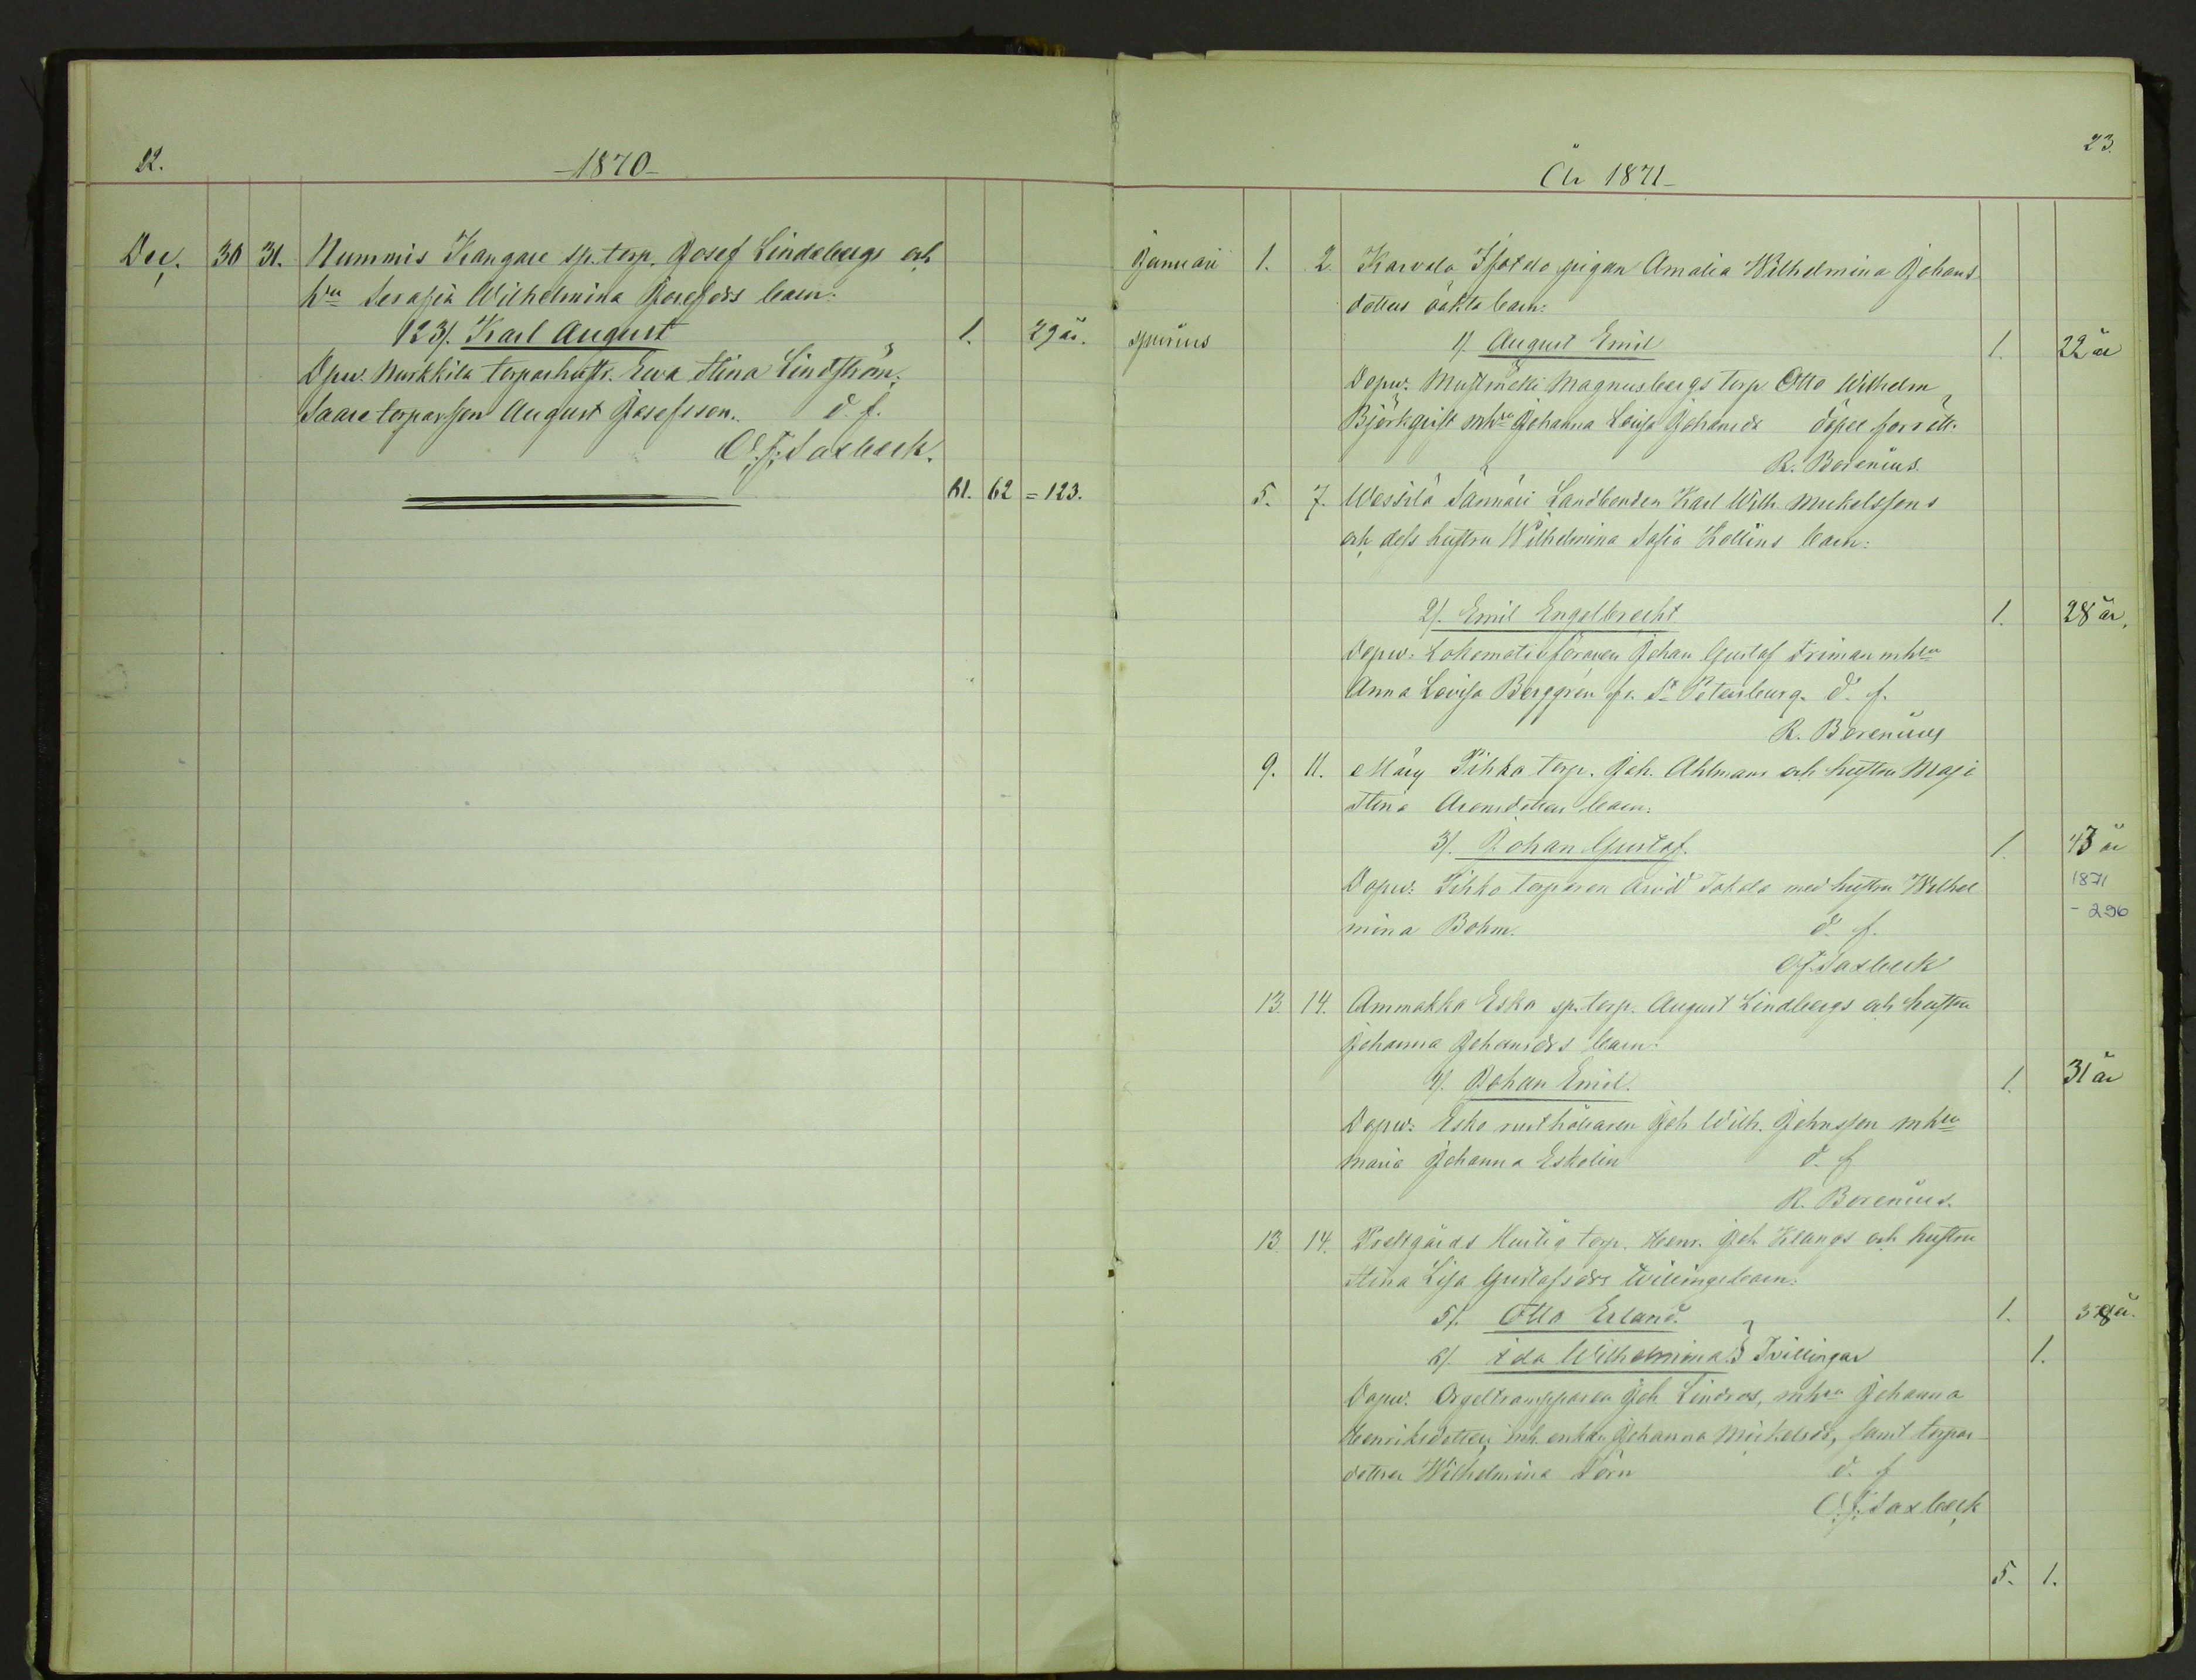 22.
1870
Dec. 30 31. Nummis Kangare sp. torp. Josef Lindebergs och
hru Serafia Wilhelmina Josefdrs barn:
123/. Karl August 1. 29 år.
Dpw. Murkkila torparhustr. Ewa Stina Lindström,
Saare torparsson August Josefsson. d. f.
O. F. Saxbeck.
61. 62 = 123.
23.
År 1871
Januari 1. 2. Karvela pigan Amalia Wilhelmina Johans
dotters oäkta barn:
spurius 1/. August Emil 1. 22 år
Dopw: Magnusbergs torp Otto Wilhelm
Björkqvist mhru Johanna Lovisa Johansdr döpee förrätt.
R. Borenius.
5. 7. Wessilä Sännäri Landbonden Karl Wilh. Mickelssons
och dess hustru Wilhelmina Sofia Kollins barn:
2/. Emil Engelbrecht 1. 28 år.
Dopw: Lokomotivföraren Johan Gustaf Friman mhru
Anna Lovisa Berggren fr. St Petersburg. d. f.
R. Borenius
9. 11. Märy Pihko torp. Joh. Ahlmans och hustru Maja
Stina Aronsdotters barn:
3/. Johan Gustaf. 1. 43 år
1871
- 296
Dopw: Pihko torparen Arvid Tokola med hustru Wilhel
mina Bohm. d. f.
O. F. Saxbeck
13. 14. Ammakka Esko sp. torp. August Lindbergs och hustru
Johanna Johansdrs barn:
4/. Johan Emil. 1. 31 år
Dopw: Esko rusthållaren Joh Wilh. Johnsson mhru
Maria Johanna Eskolin d. f
R. Borenius.
13. 14. Prestgårds Huitig torp. Henr. Joh Klangs och hustru
Stina Lisa Gustafsdrs tvillingebarn:
5/. Otto Erland. 1. 38 år.
6/. Ida Wilhelmina } Tvillingar 1.
Dopw. Orgeltramparen Joh Lindros, mhru Johanna
Henriksdotter, inh. enkan Johanna Mickelsdr, samt torpar
dottren Wilhelmina Törn d. f
O. F. Saxbeck
5. 1.